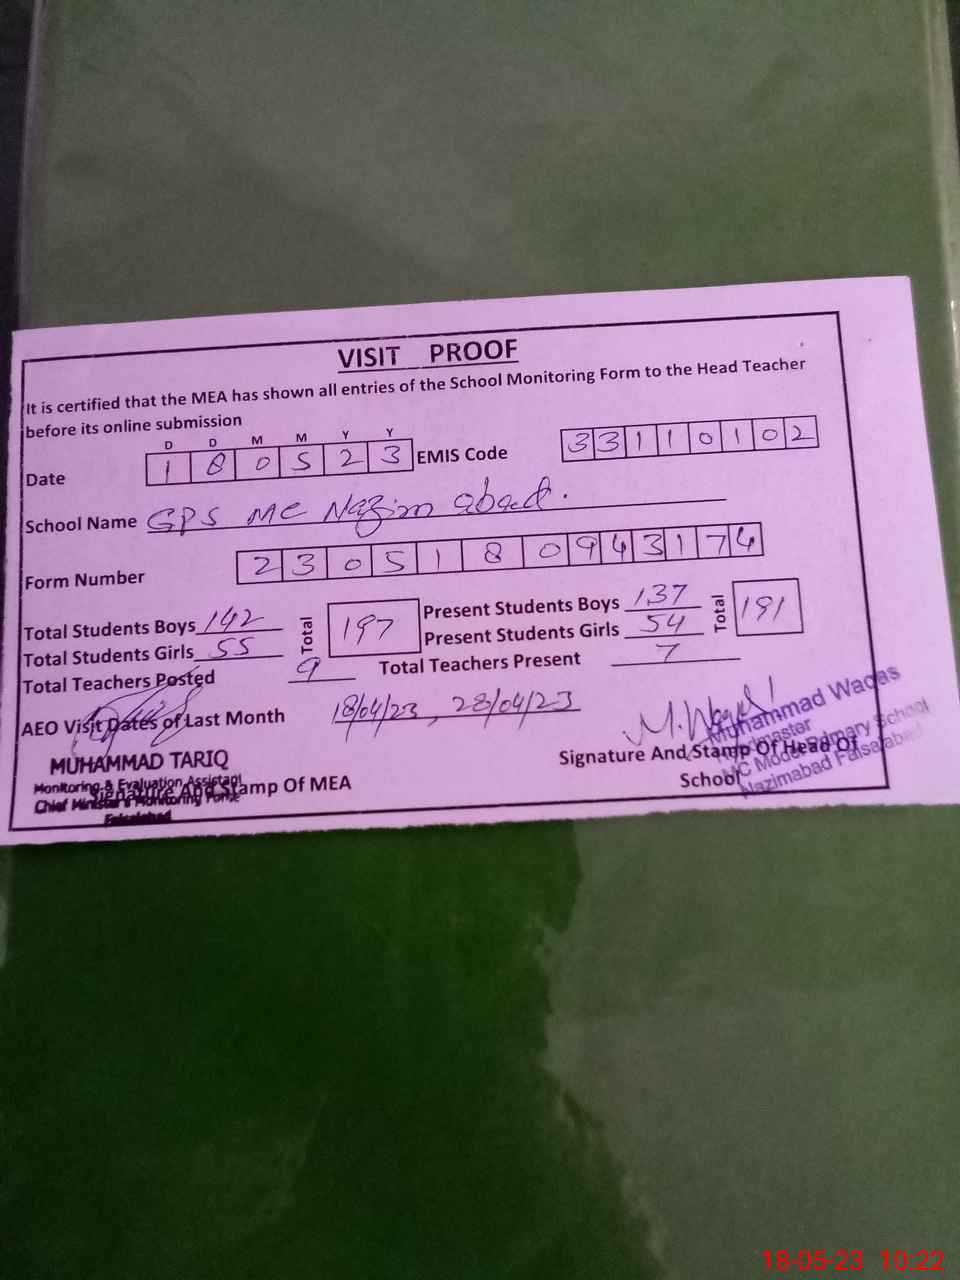 VISIT PROOF
It is certified that the MEA has shown all entries of the School Monitoring Form to the Head Teacher
before its online submission
D D M M Y Y
Date 1 8 0 5 2 3 EMIS Code 3 3 1 1 0 1 0 2
School Name GPS MC Nazim abad.
Form Number 2 3 0 5 1 8 0 9 4 3 1 7 4
Total Students Boys 142 Total 197 Present Students Boys 137 Total 191
Total Students Girls 55 Present Students Girls 54
Total Teachers Posted 9 Total Teachers Present 7
AEO Visit Dates of Last Month 18/04/23, 28/04/23
M. Waqas
Muhammad Waqas
Headmaster
MC Model Primary School
Nazimabad Faisalabad
MUHAMMAD TARIQ
Monitoring & Evaluation Assistant
Chief Minister's Monitoring Force
Faisalabad
Signature And Stamp Of MEA
Signature And Stamp Of Head Of
School
18-05-23 10:22